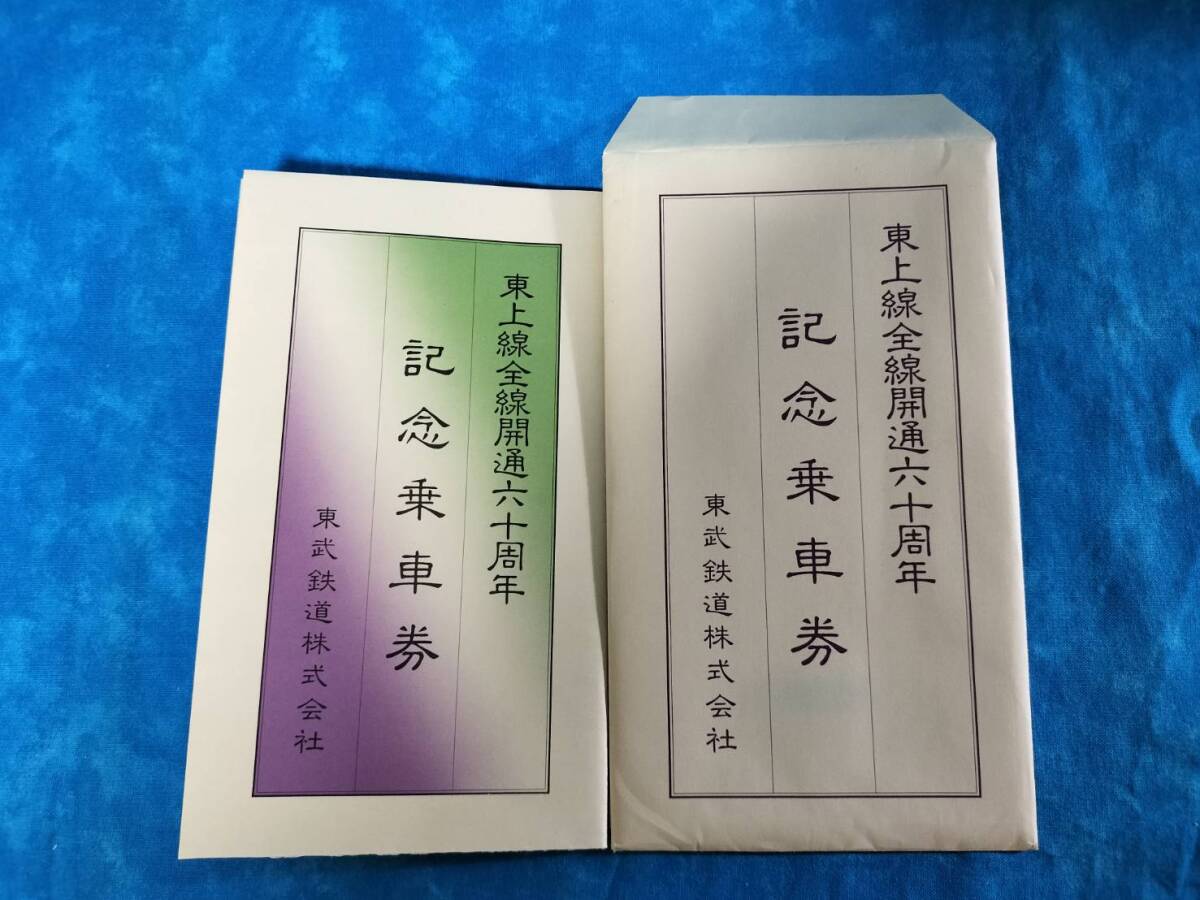 東上線全線開通六十周年
記念乗車券
東武鉄道株式会社
東上線全線開通六十周年
記念乗車券
東武鉄道株式会社